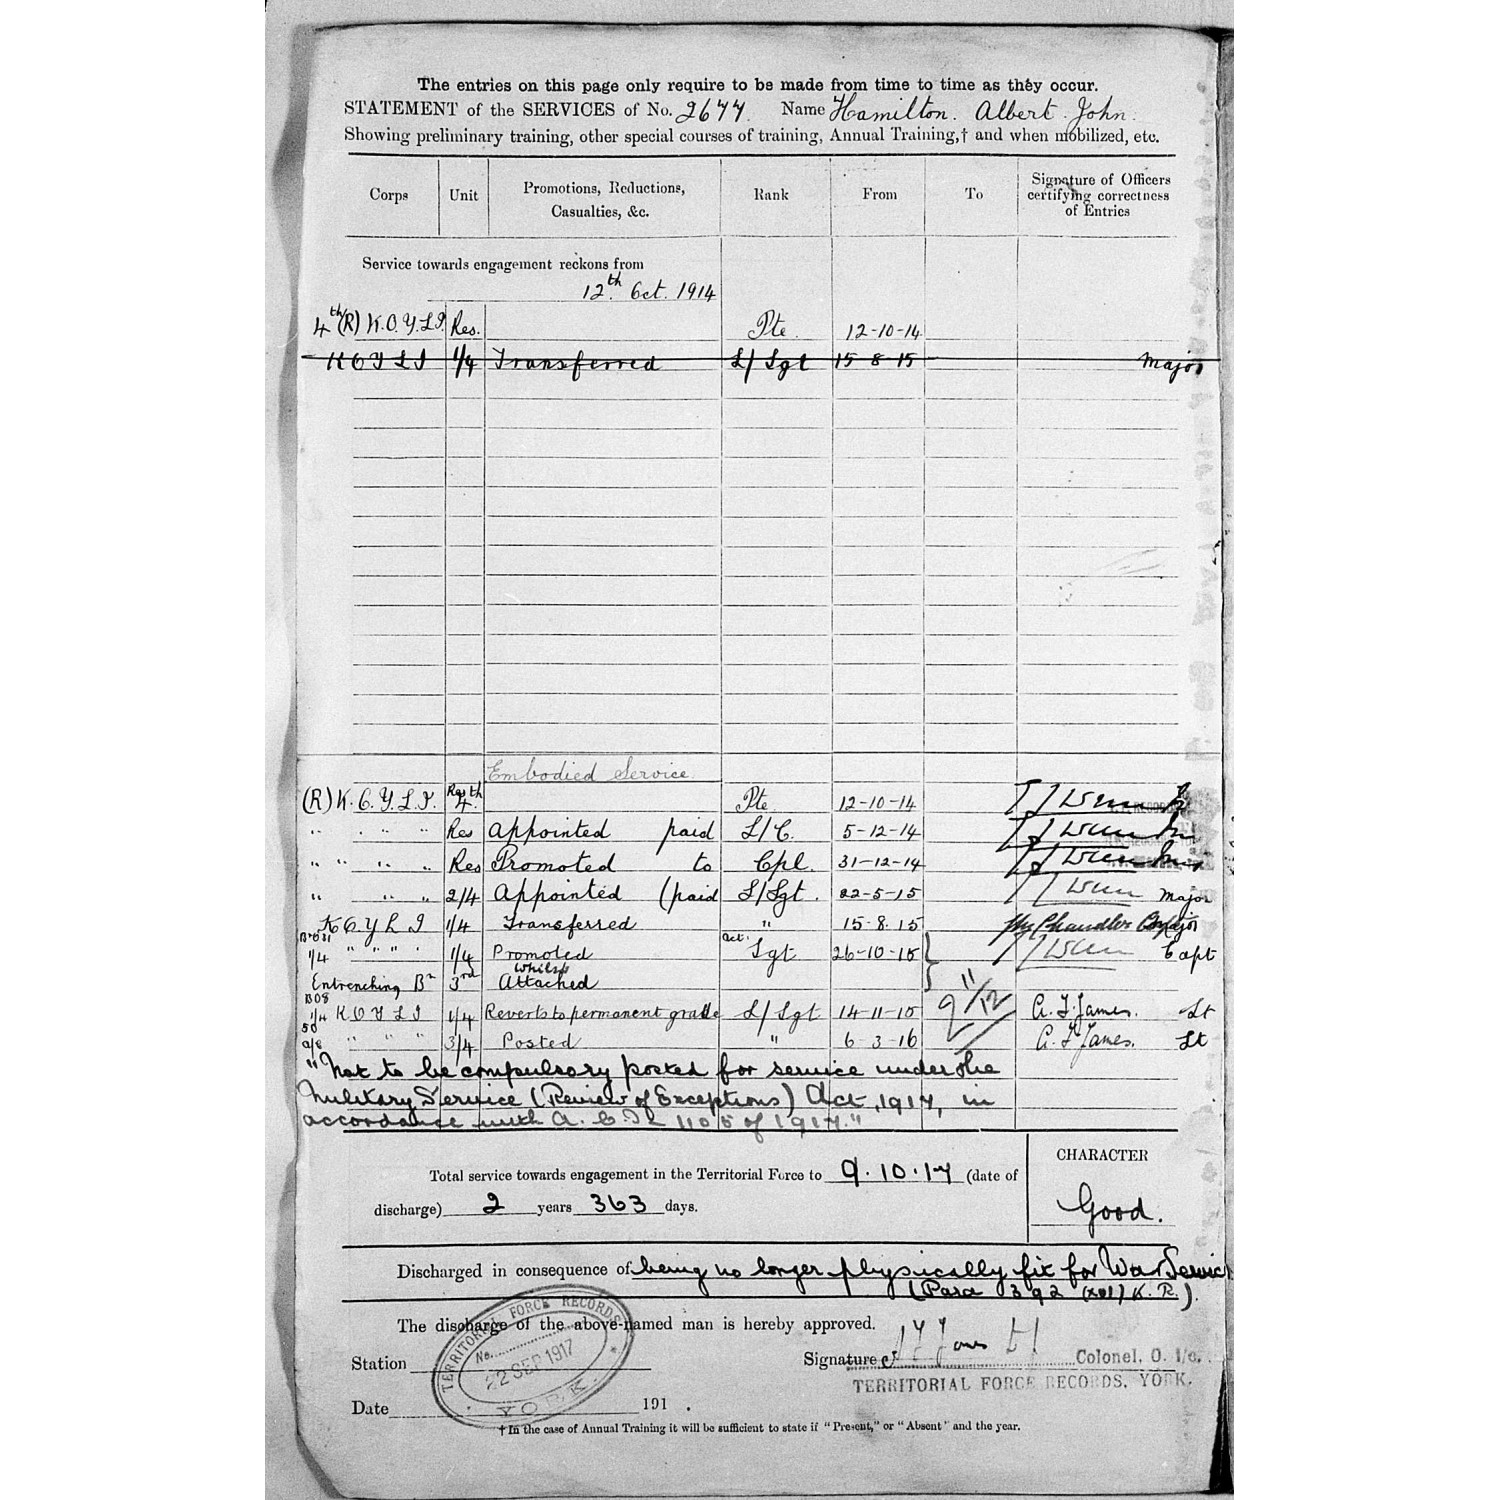 The entries on this page only require to be made from time to time as they occur.
STATEMENT of the SERVICES of No. 2677. Name Hamilton. Albert. John.
Showing preliminary training, other special courses of training, Annual Training,† and when mobilized, etc.
Corps Unit Promotions, Reductions, Casualties, &c. Rank From To Signature of Officers certifying correctness of Entries
Service towards engagement reckons from
12th Oct. 1914
4th (R) K.O.Y.L.I. Res. Pte 12-10-14
K O Y L I 1/4 Transferred L/Sgt 15-8-15 Major
Embodied Service
(R) K.O.Y.L.I. Res 4th Pte 12-10-14
" " " " Res Appointed paid L/C. 5-12-14
" " " " Res Promoted to Cpl. 31-12-14
" " " 2/4 Appointed (paid L/Sgt. 22-5-15 Major
K O Y L I 1/4 Transferred " 15.8.15 Chandler Major
1/4 " " " " 1/4 Promoted Act. Sgt 26-10-15 Capt
Entrenching Bn 3rd whilst Attached
B08
1/4 K O Y L I 1/4 Reverts to permanent grade L/Sgt 14-11-15 A. F. James. Lt
" " " 3/4 Posted " 6-3-16 A. F. James. Lt
"Not to be compulsory posted for service under the
Military Service (Review of Exceptions) Act, 1917, in
accordance with A.C.I. 1105 of 1917."
Total service towards engagement in the Territorial Force to 9.10.17 (date of
discharge) 2 years 363 days.
CHARACTER
Good.
Discharged in consequence of being no longer physically fit for War Service
(Para 392 (xvi) K.R.).
The discharge of the above-named man is hereby approved.
Station
Signature Colonel, O. i/c.
TERRITORIAL FORCE RECORDS, YORK.
Date 191 .
TERRITORIAL FORCE RECORDS
No.
22 SEP 1917
YORK.
† In the case of Annual Training it will be sufficient to state if "Present," or "Absent" and the year.